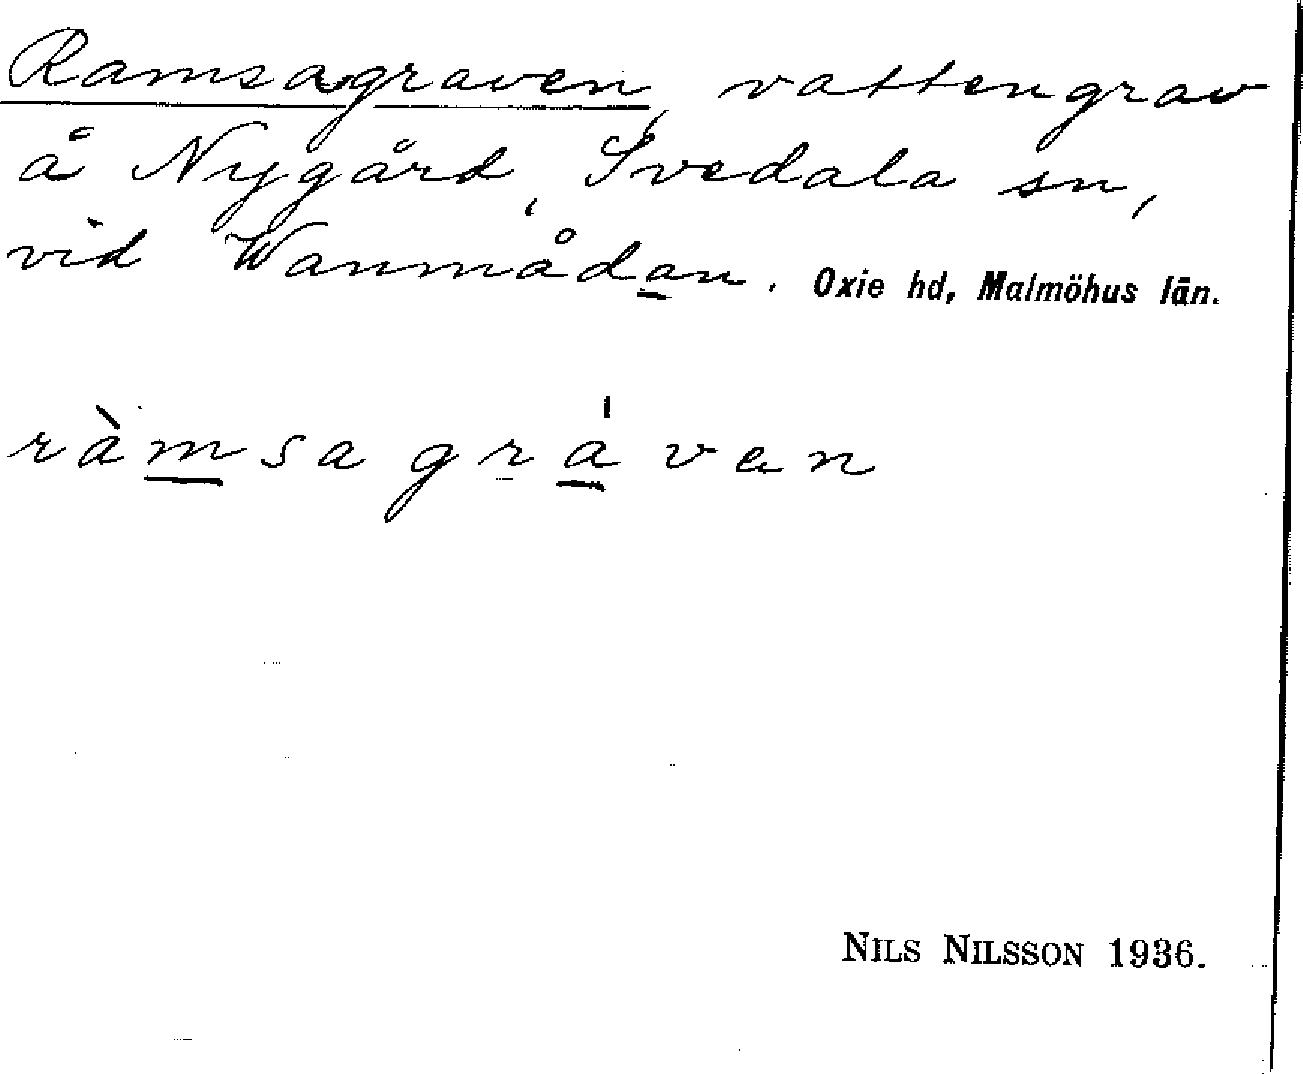 Ramsagraven, vattengrav
å Nygård, Svedala sn,
vid Wanmådan. Oxie hd, Malmöhus län.
ràmsagráven
NILS NILSSON 1936.